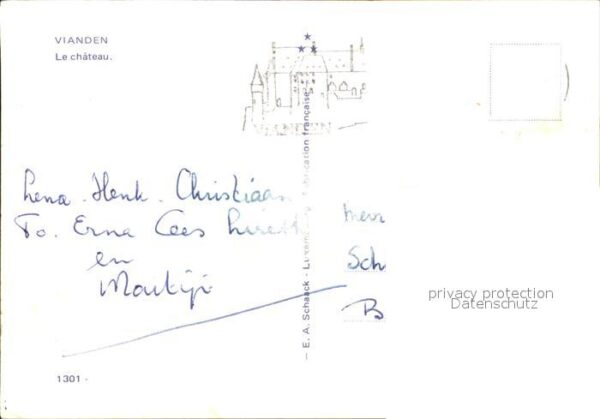 VIANDEN
Le château.
VIANDEN
Lena. Henk. Christiaan
To. Erna Cees
en
Sch
B
— E. A. Schaack - Luxembourg - Fabrication française
privacy protection
Datenschutz
1301 -